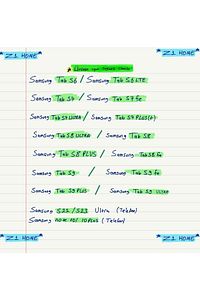 Z1 HOME Z1 HOME
Samsung Tab S6 / Samsung Tab S6 LTE
Samsung Tab S7 / Samsung Tab S7 fe
Samsung Tab S7 ULTRA / Samsung Tab S7 PLUS(+)
Samsung Tab S8 ULTRA / Samsung Tab S8
Samsung Tab S8 PLUS / Samsung Tab S8 fe
Samsung Tab S9 / Samsung Tab S9 fe
Samsung Tab S9 PLUS / Samsung Tab S9 ULTRA
Samsung S22 / S23 Ultra (Telefon)
Samsung note 10 / 10 PLUS (Telefon)
Z1 HOME Z1 HOME